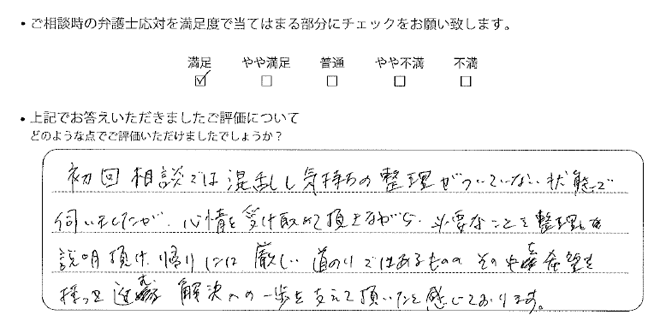 ・ご相談時の弁護士応対を満足度で当てはまる部分にチェックをお願い致します。
満足 やや満足 普通 やや不満 不満
・上記でお答えいただきましたご評価について
どのような点でご評価いただけましたでしょうか？
初回相談では混乱し気持ちの整理がついていない状態で
伺いましたが、心情を受け取めて頂きながら、必要なことを整理して
説明頂け、帰りには厳しい道のりではあるものの その中希望を
持って 解決への一歩を支えて頂いたと感じております。